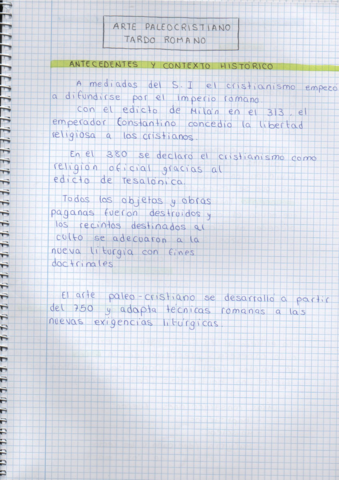 ARTE PALEOCRISTIANO
TARDO ROMANO
ANTECEDENTES Y CONTEXTO HISTÓRICO
A mediados del S. I el cristianismo empezó
a difundirse por el imperio romano
Con el edicto de Milán en el 313, el
emperador Constantino concedió la libertad
religiosa a los cristianos.
En el 380 se declaró el cristianismo como
religión oficial gracias al
edicto de Tesalónica.
Todos los objetos y obras
paganas fueron destruidos y
los recintos destinados al
culto se adecuaron a la
nueva liturgia con fines
doctrinales
El arte paleo-cristiano se desarrolló a partir
del 750 y adapta técnicas romanas a las
nuevas exigencias litúrgicas.